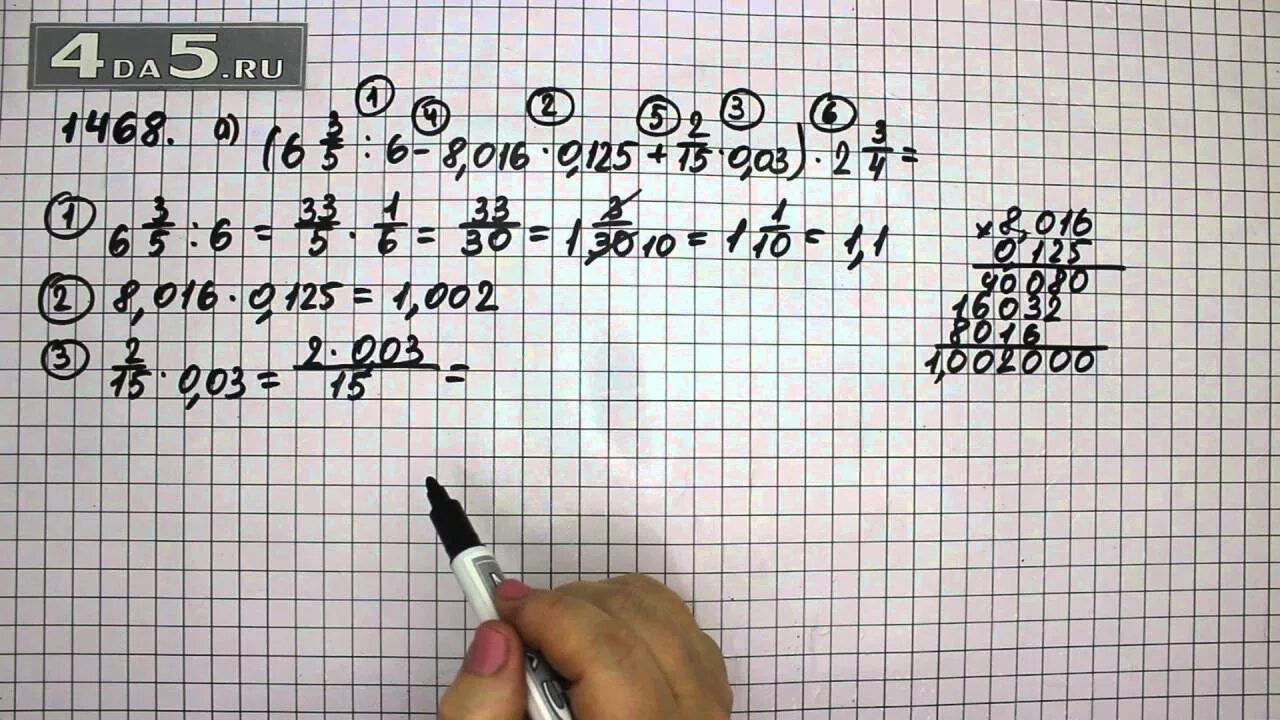 4DA5.RU
1468. а) (6 3/5 : 6 - 8,016 · 0,125 + 2/15 · 0,03) · 2 3/4 =
① ④ ② ⑤ ③ ⑥
① 6 3/5 : 6 = 33/5 · 1/6 = 33/30 = 1 3/30 10 = 1 1/10 = 1,1
② 8,016 · 0,125 = 1,002
③ 2/15 · 0,03 = 2 · 0,03/15 =
× 8,016
0,125
40080
16032
8016
1,002000